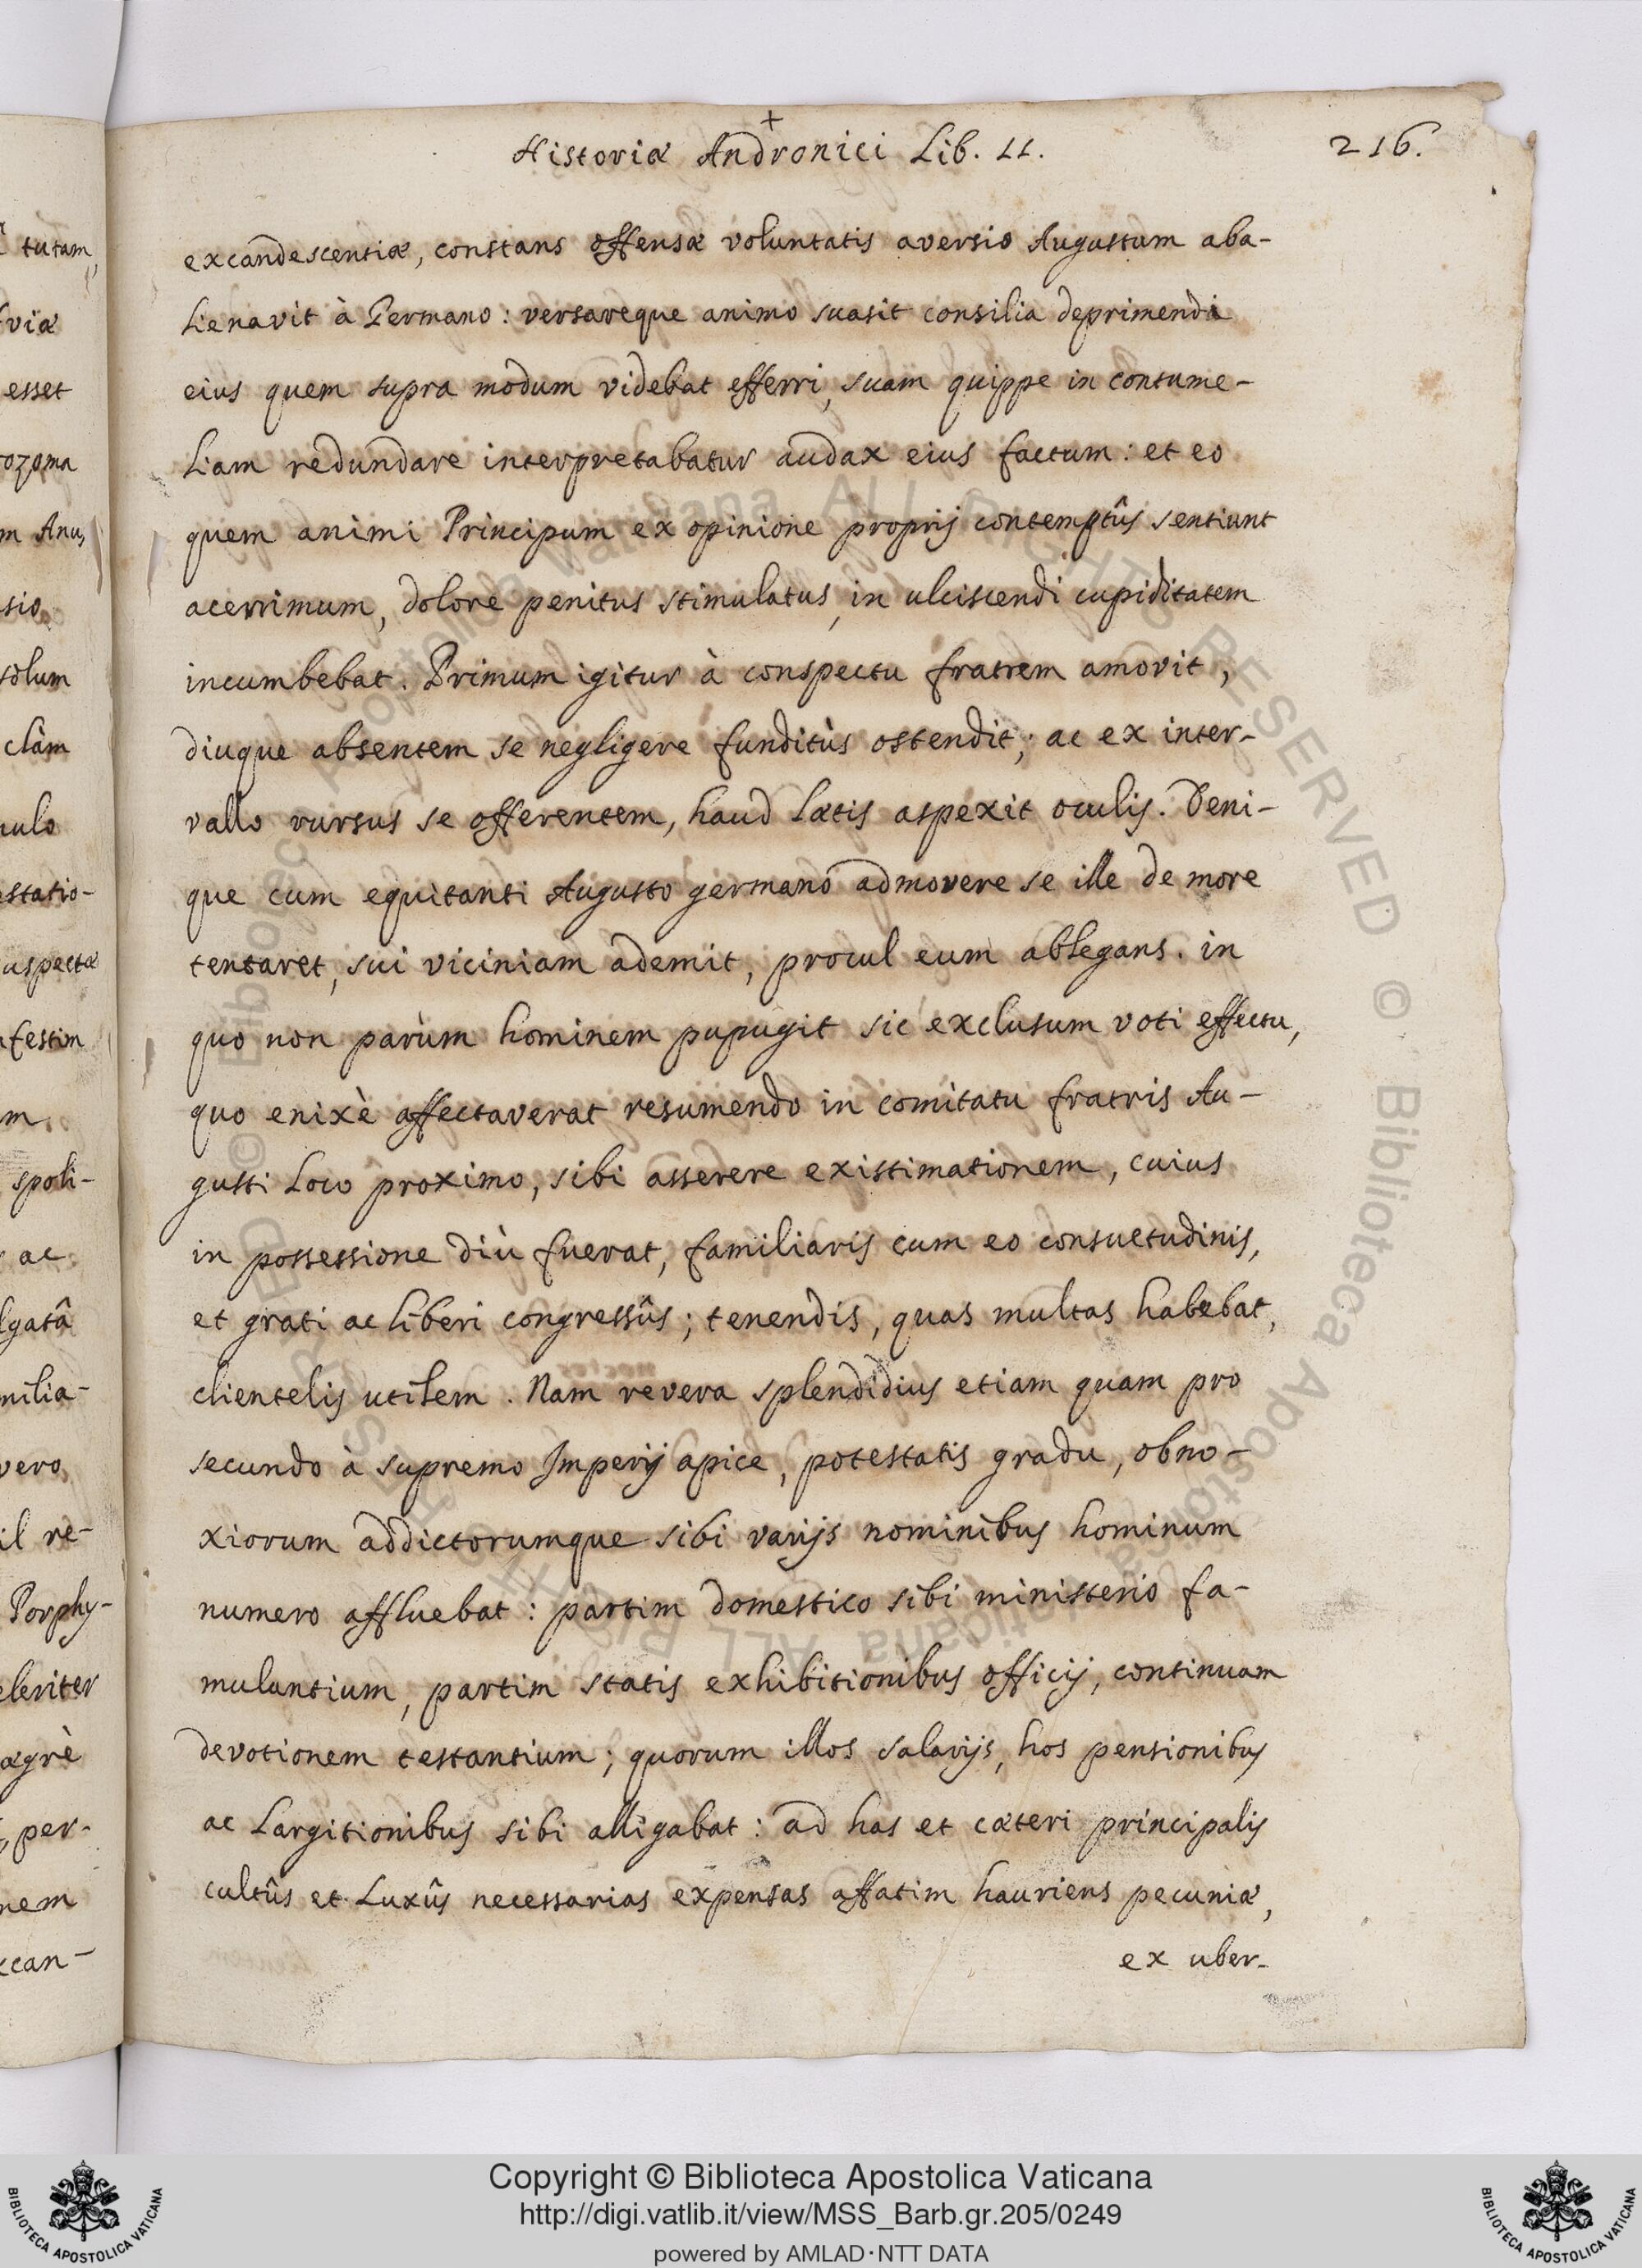 Historiæ Andronici Lib. II.
216.
excandescentiæ, constans offensæ voluntatis aversio Augustum aba-
lienavit à Germano: versareque animo suasit consilia deprimendi
eius quem supra modum videbat efferri, suam quippe in contume-
liam redundare interpretabatur audax eius factum: et eo
quem animi Principum ex opinione proprij contemptûs sentiunt
acerrimum, dolore penitus stimulatus, in ulciscendi cupiditatem
incumbebat. Primum igitur à conspectu fratrem amovit,
diuque absentem se negligere funditùs ostendit; ac ex inter-
vallo rursus se offerentem, haud lætis aspexit oculis. Deni-
que cum equitanti Augusto germano admovere se ille de more
tentaret, sui viciniam ademit, procul eum ablegans. in
quo non parùm hominem pupugit sic exclusum voti effectu,
quo enixè affectaverat resumendo in comitatu fratris Au-
gusti loco proximo, sibi asserere existimationem, cuius
in possessione diù fuerat, familiaris cum eo consuetudinis,
et grati ac liberi congressûs; tenendis, quas multas habebat,
clientelis utilem. Nam revera splendidius etiam quam pro
secundo à supremo Imperij apice, potestatis gradu, obno-
xiorum addictorumque sibi varijs nominibus hominum
numero affluebat: partim domestico sibi ministerio fa-
mulantium, partim statis exhibitionibus officij, continuam
devotionem testantium; quorum illos salarijs, hos pensionibus
ac largitionibus sibi alligabat: ad has et cæteri principalis
cultûs et luxûs necessarias expensas affatim hauriens pecuniæ,
ex uber-
tutam,
viæ
esset
ozoma
m Anu,
sio
solum
clàm
estatio-
uspectæ
festim
m
spoli-
ac
lgatâ
milia-
vero
il re-
Porphy-
eleriter
ægrè
per-
nem
can-
© Biblioteca Apostolica Vaticana ALL RIGHTS RESERVED © Biblioteca Apostolica Vaticana ALL RIGHTS RESERVED
Copyright © Biblioteca Apostolica Vaticana
http://digi.vatlib.it/view/MSS_Barb.gr.205/0249
powered by AMLAD·NTT DATA
BIBLIOTECA APOSTOLICA VATICANA
BIBLIOTECA APOSTOLICA VATICANA